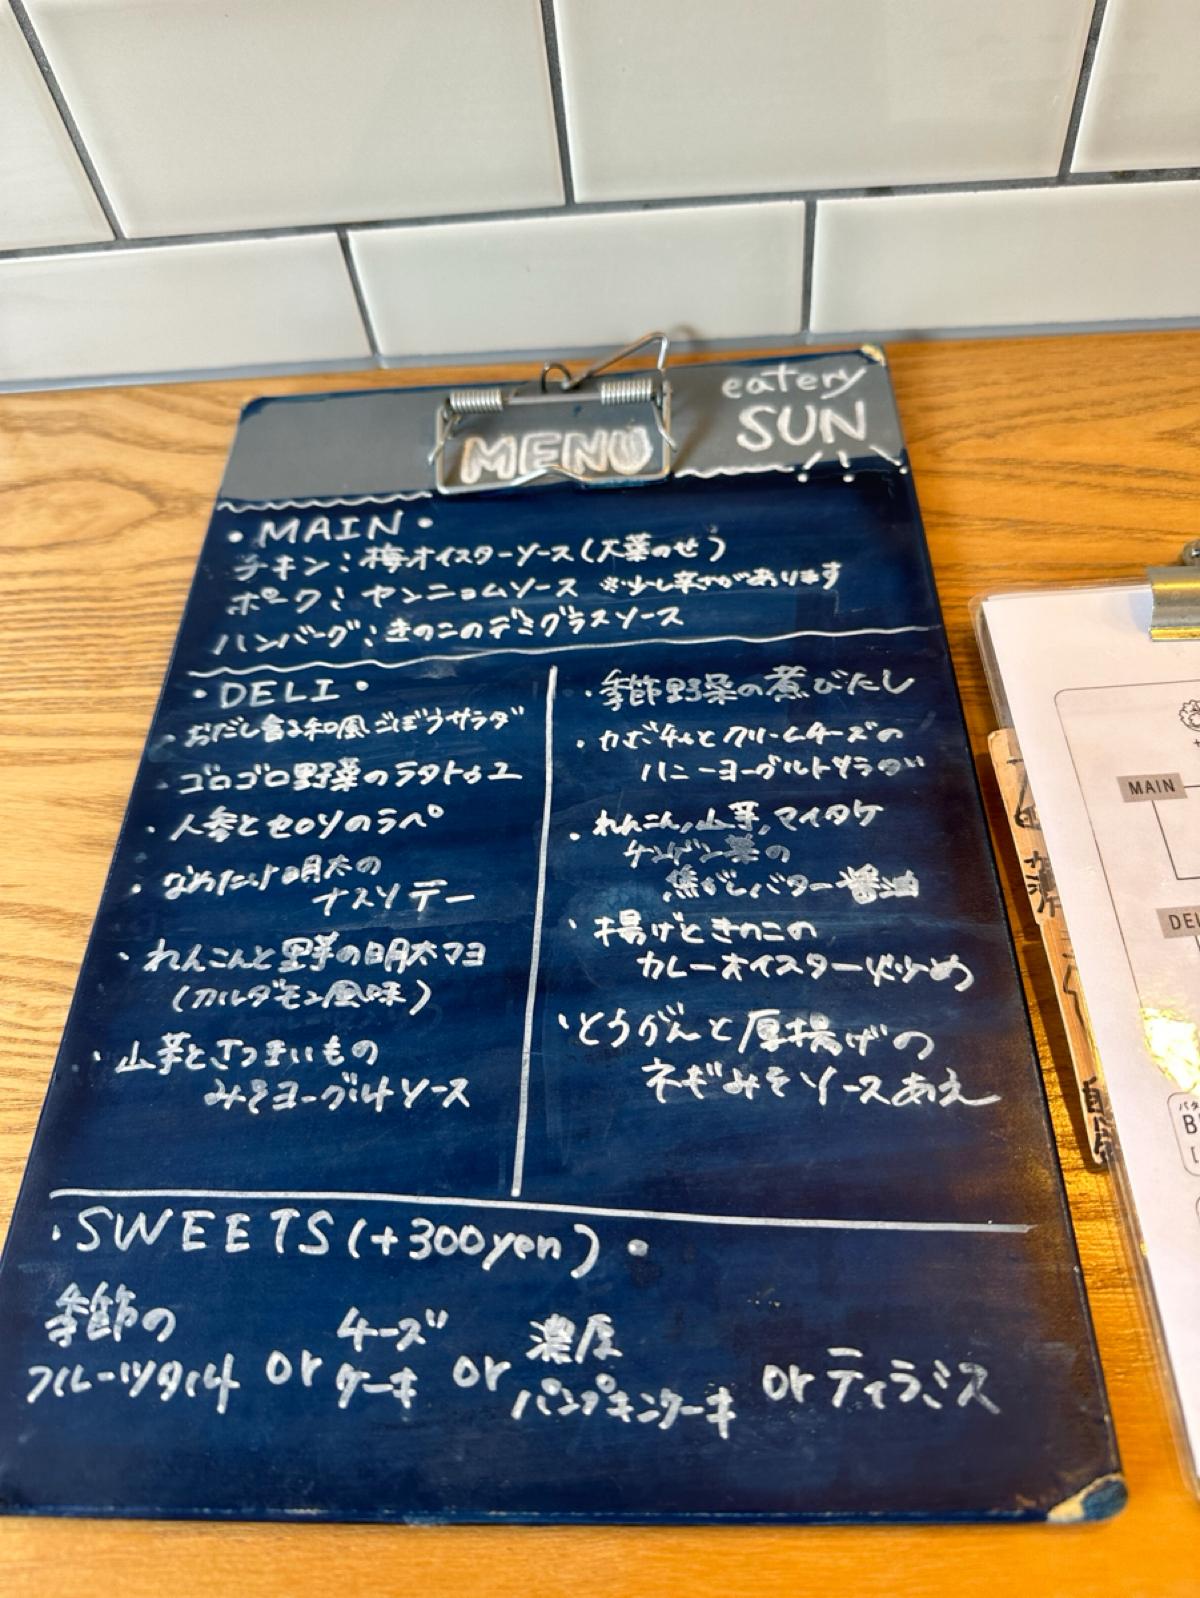 eatery
SUN
MENU
・MAIN・
チキン：梅オイスターソース(大葉のせ)
ポーク：ヤンニョムソース ※少し辛さがあります
ハンバーグ：きのこのデミグラスソース
・DELI・
・おだし香る和風ごぼうサラダ
・ゴロゴロ野菜のラタトゥユ
・人参とセロリのラペ
・なめたけ明太の
ナスソテー
・れんこんと里芋の明太マヨ
(カルダモン風味)
・山芋とさつまいもの
みそヨーグルトソース
・季節野菜の煮びたし
・カボチャとクリームチーズの
ハニーヨーグルトサラダ
・れんこん,山芋,マイタケ
チンゲン菜の
焦がしバター醤油
・揚げときのこの
カレーオイスター炒め
・とうがんと厚揚げの
ネギみそソースあえ
・SWEETS(+300yen)・
季節の
フルーツタルト or チーズ
ケーキ or 濃厚
パンプキンケーキ or ティラミス
MAIN